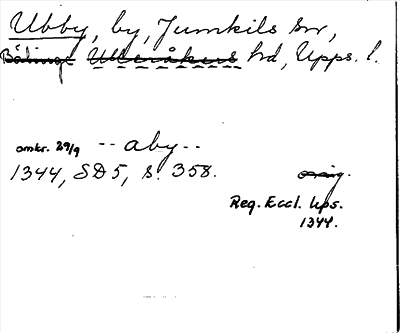 Ubby, by, Jumkils sn,
Bälinge Ulleråkers hd, Upps. l.
omkr. 29/9 -- aby --
1344, SD5, s. 358. orig.
Reg. Eccl. Ups.
1344.